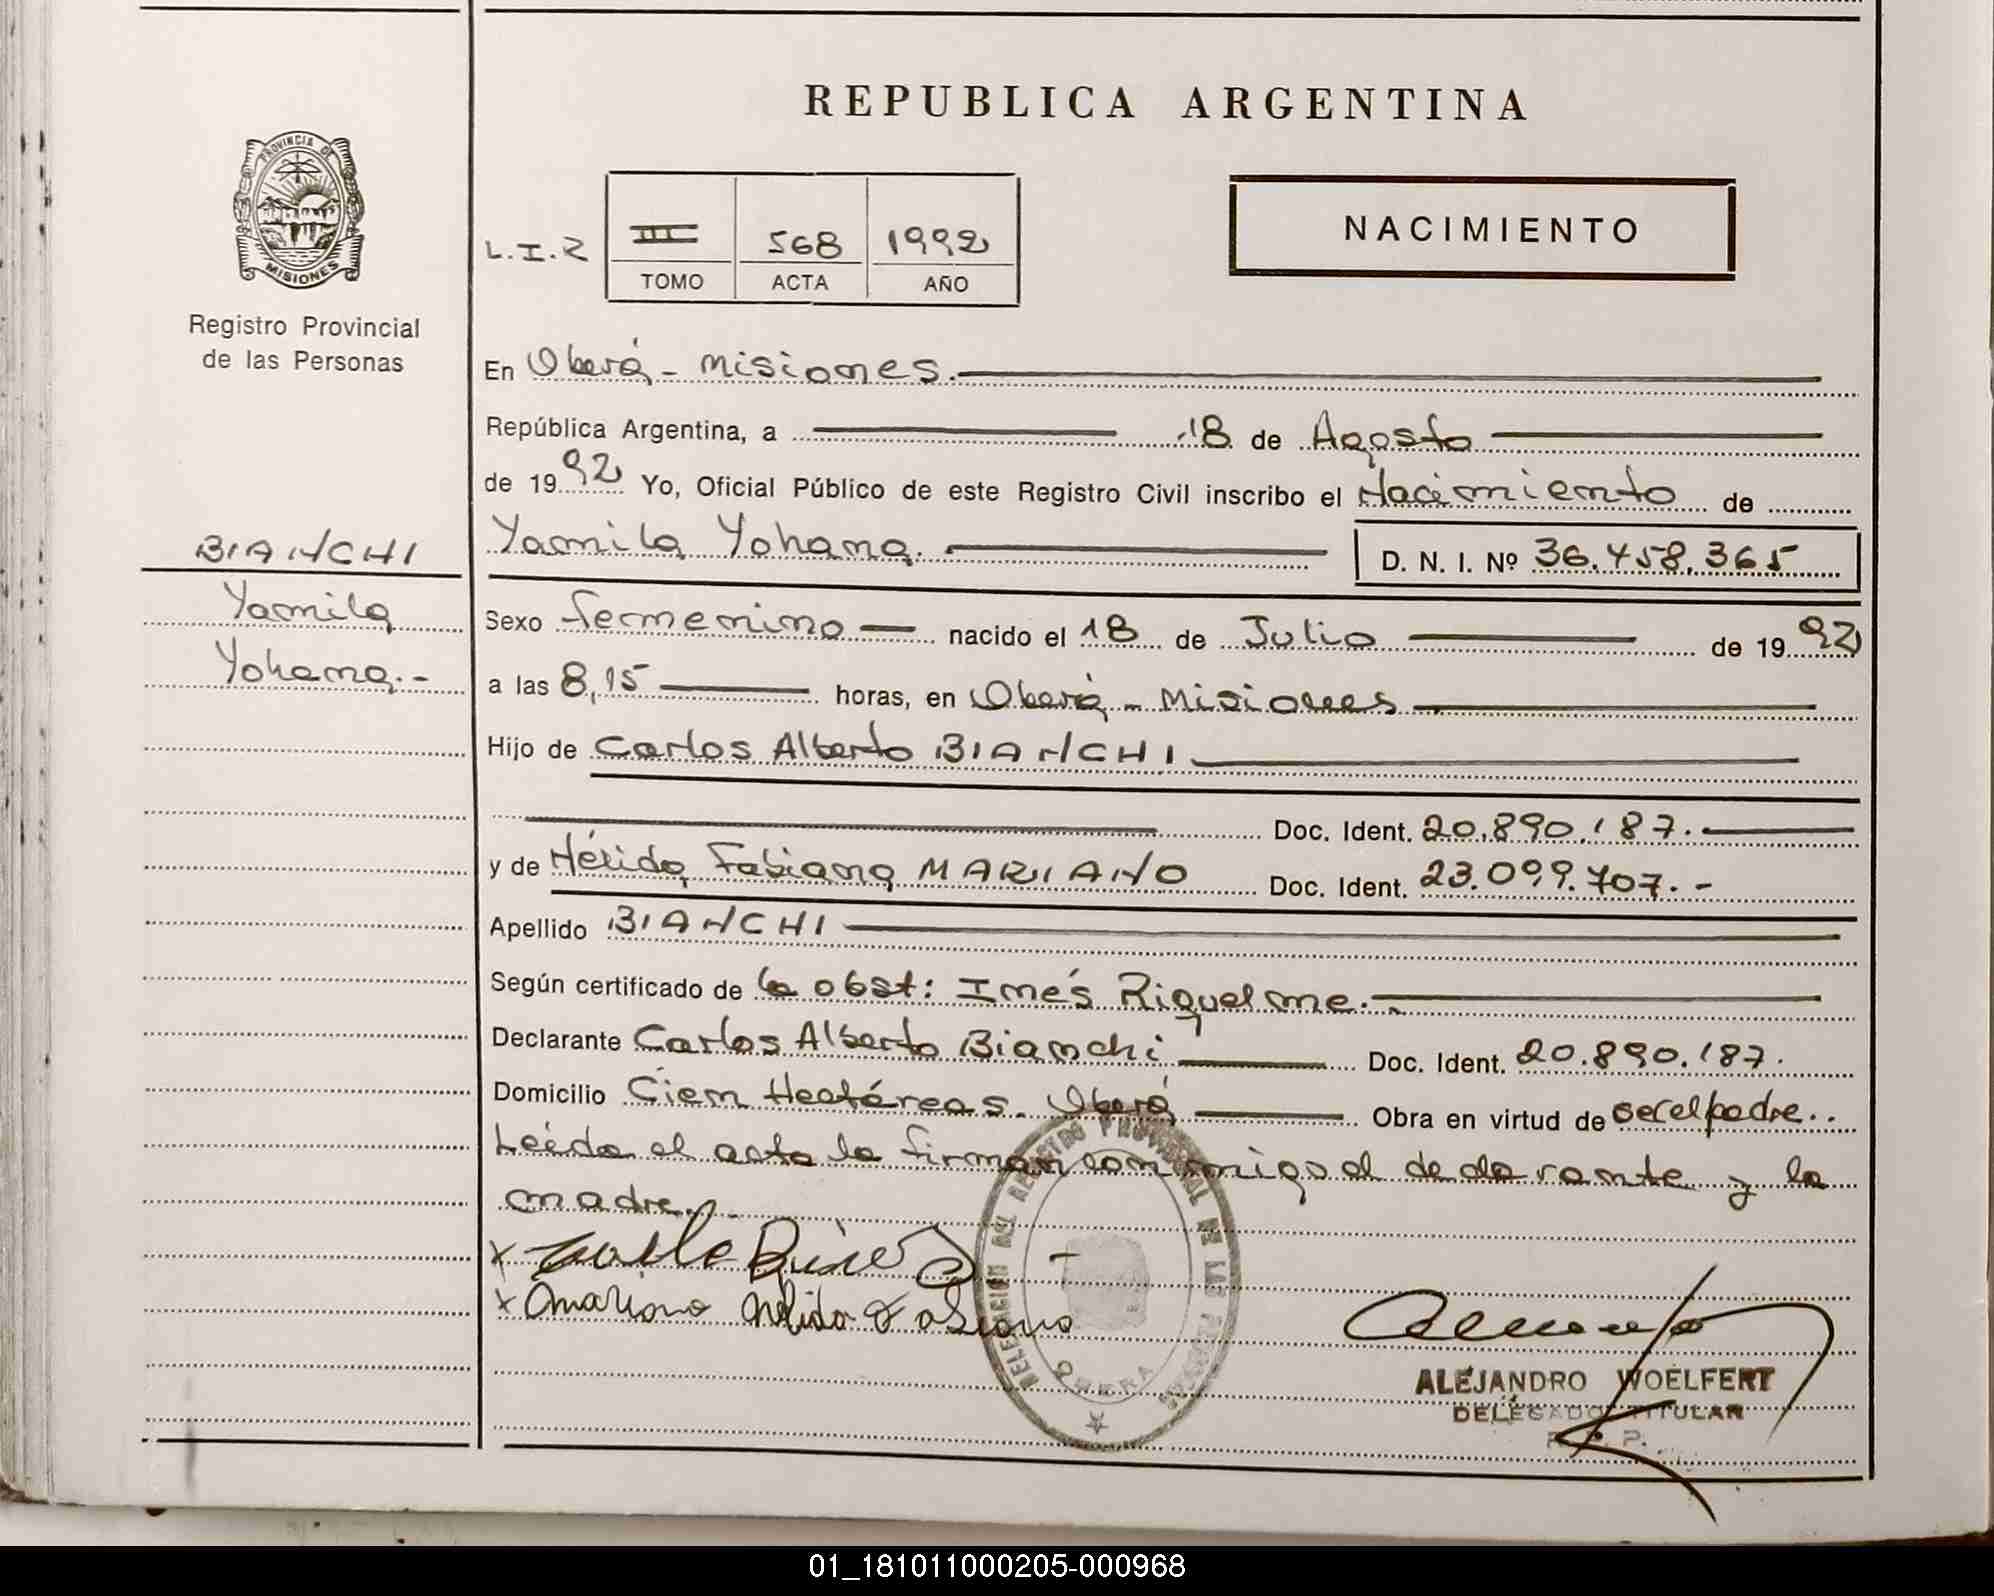 REPUBLICA ARGENTINA
PROVINCIA DE
MISIONES
Registro Provincial
de las Personas
NACIMIENTO
L.I.2 III 568 1992
TOMO ACTA AÑO
En Oberá - Misiones.
República Argentina, a 18 de Agosto
de 1992 Yo, Oficial Público de este Registro Civil inscribo el Nacimiento de
Yamila Yohana. D. N. I. Nº 36.458.365
BIANCHI
Yamila
Yohana.-
Sexo femenino nacido el 18 de Julio de 1992
a las 8,15 horas, en Oberá - Misiones
Hijo de Carlos Alberto BIANCHI
Doc. Ident. 20.890.187.
y de Nélida Fabiana MARIANO Doc. Ident. 23.099.707.-
Apellido BIANCHI
Según certificado de la obst: Inés Riquelme.
Declarante Carlos Alberto Bianchi Doc. Ident. 20.890.187.
Domicilio Cien Hectáreas. Oberá Obra en virtud de ser el padre..
Leída el acta la firman conmigo el declarante y la
madre.
x
x Mariano Nelida Fabiana
DELEGACION DEL REGISTRO PROVINCIAL DE LAS PERSONAS
OBERA
ALEJANDRO WOELFERT
DELEGADO TITULAR
R. P. P.
01_181011000205-000968